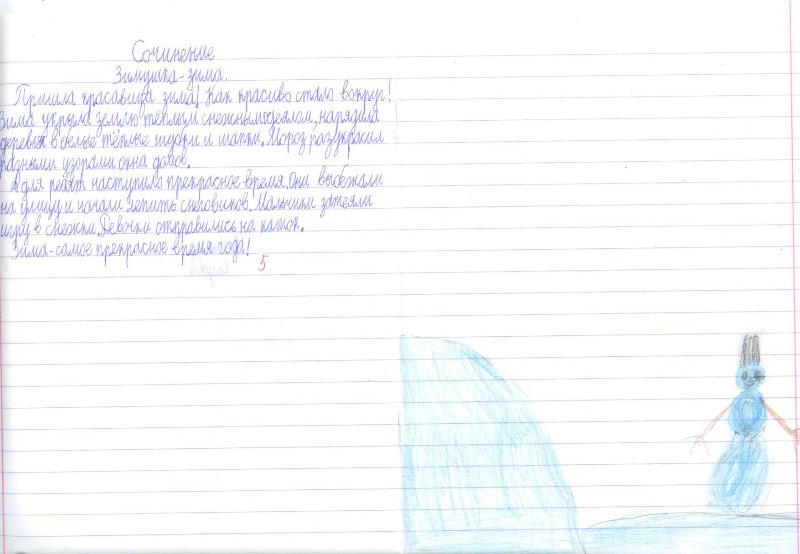 Сочинение
Зимушка-зима.
Пришла красавица зима! Как красиво стало вокруг!
Зима укрыла землю тёплым снежным одеялом, нарядила
деревья в белые тёплые шубки и шапки. Мороз разукрасил
разными узорами окна домов.
А для ребят наступило прекрасное время. Они выбежали
на улицу и начали лепить снеговиков. Мальчики затеяли
игру в снежки. Девочки отправились на каток.
Зима-самое прекрасное время года!
5